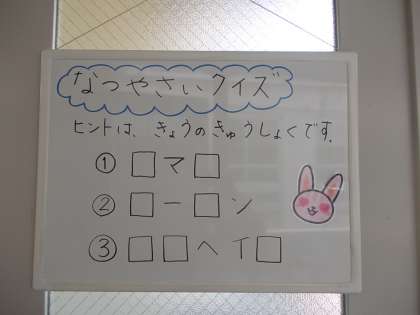 なつやさいクイズ
ヒントは、きょうのきゅうしょくです。
① □マ□
② □ー□ン
③ □□ヘイ□